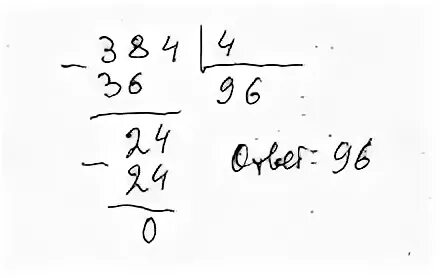 - 384 | 4
36 96
24
- 24
Ответ: 96
0